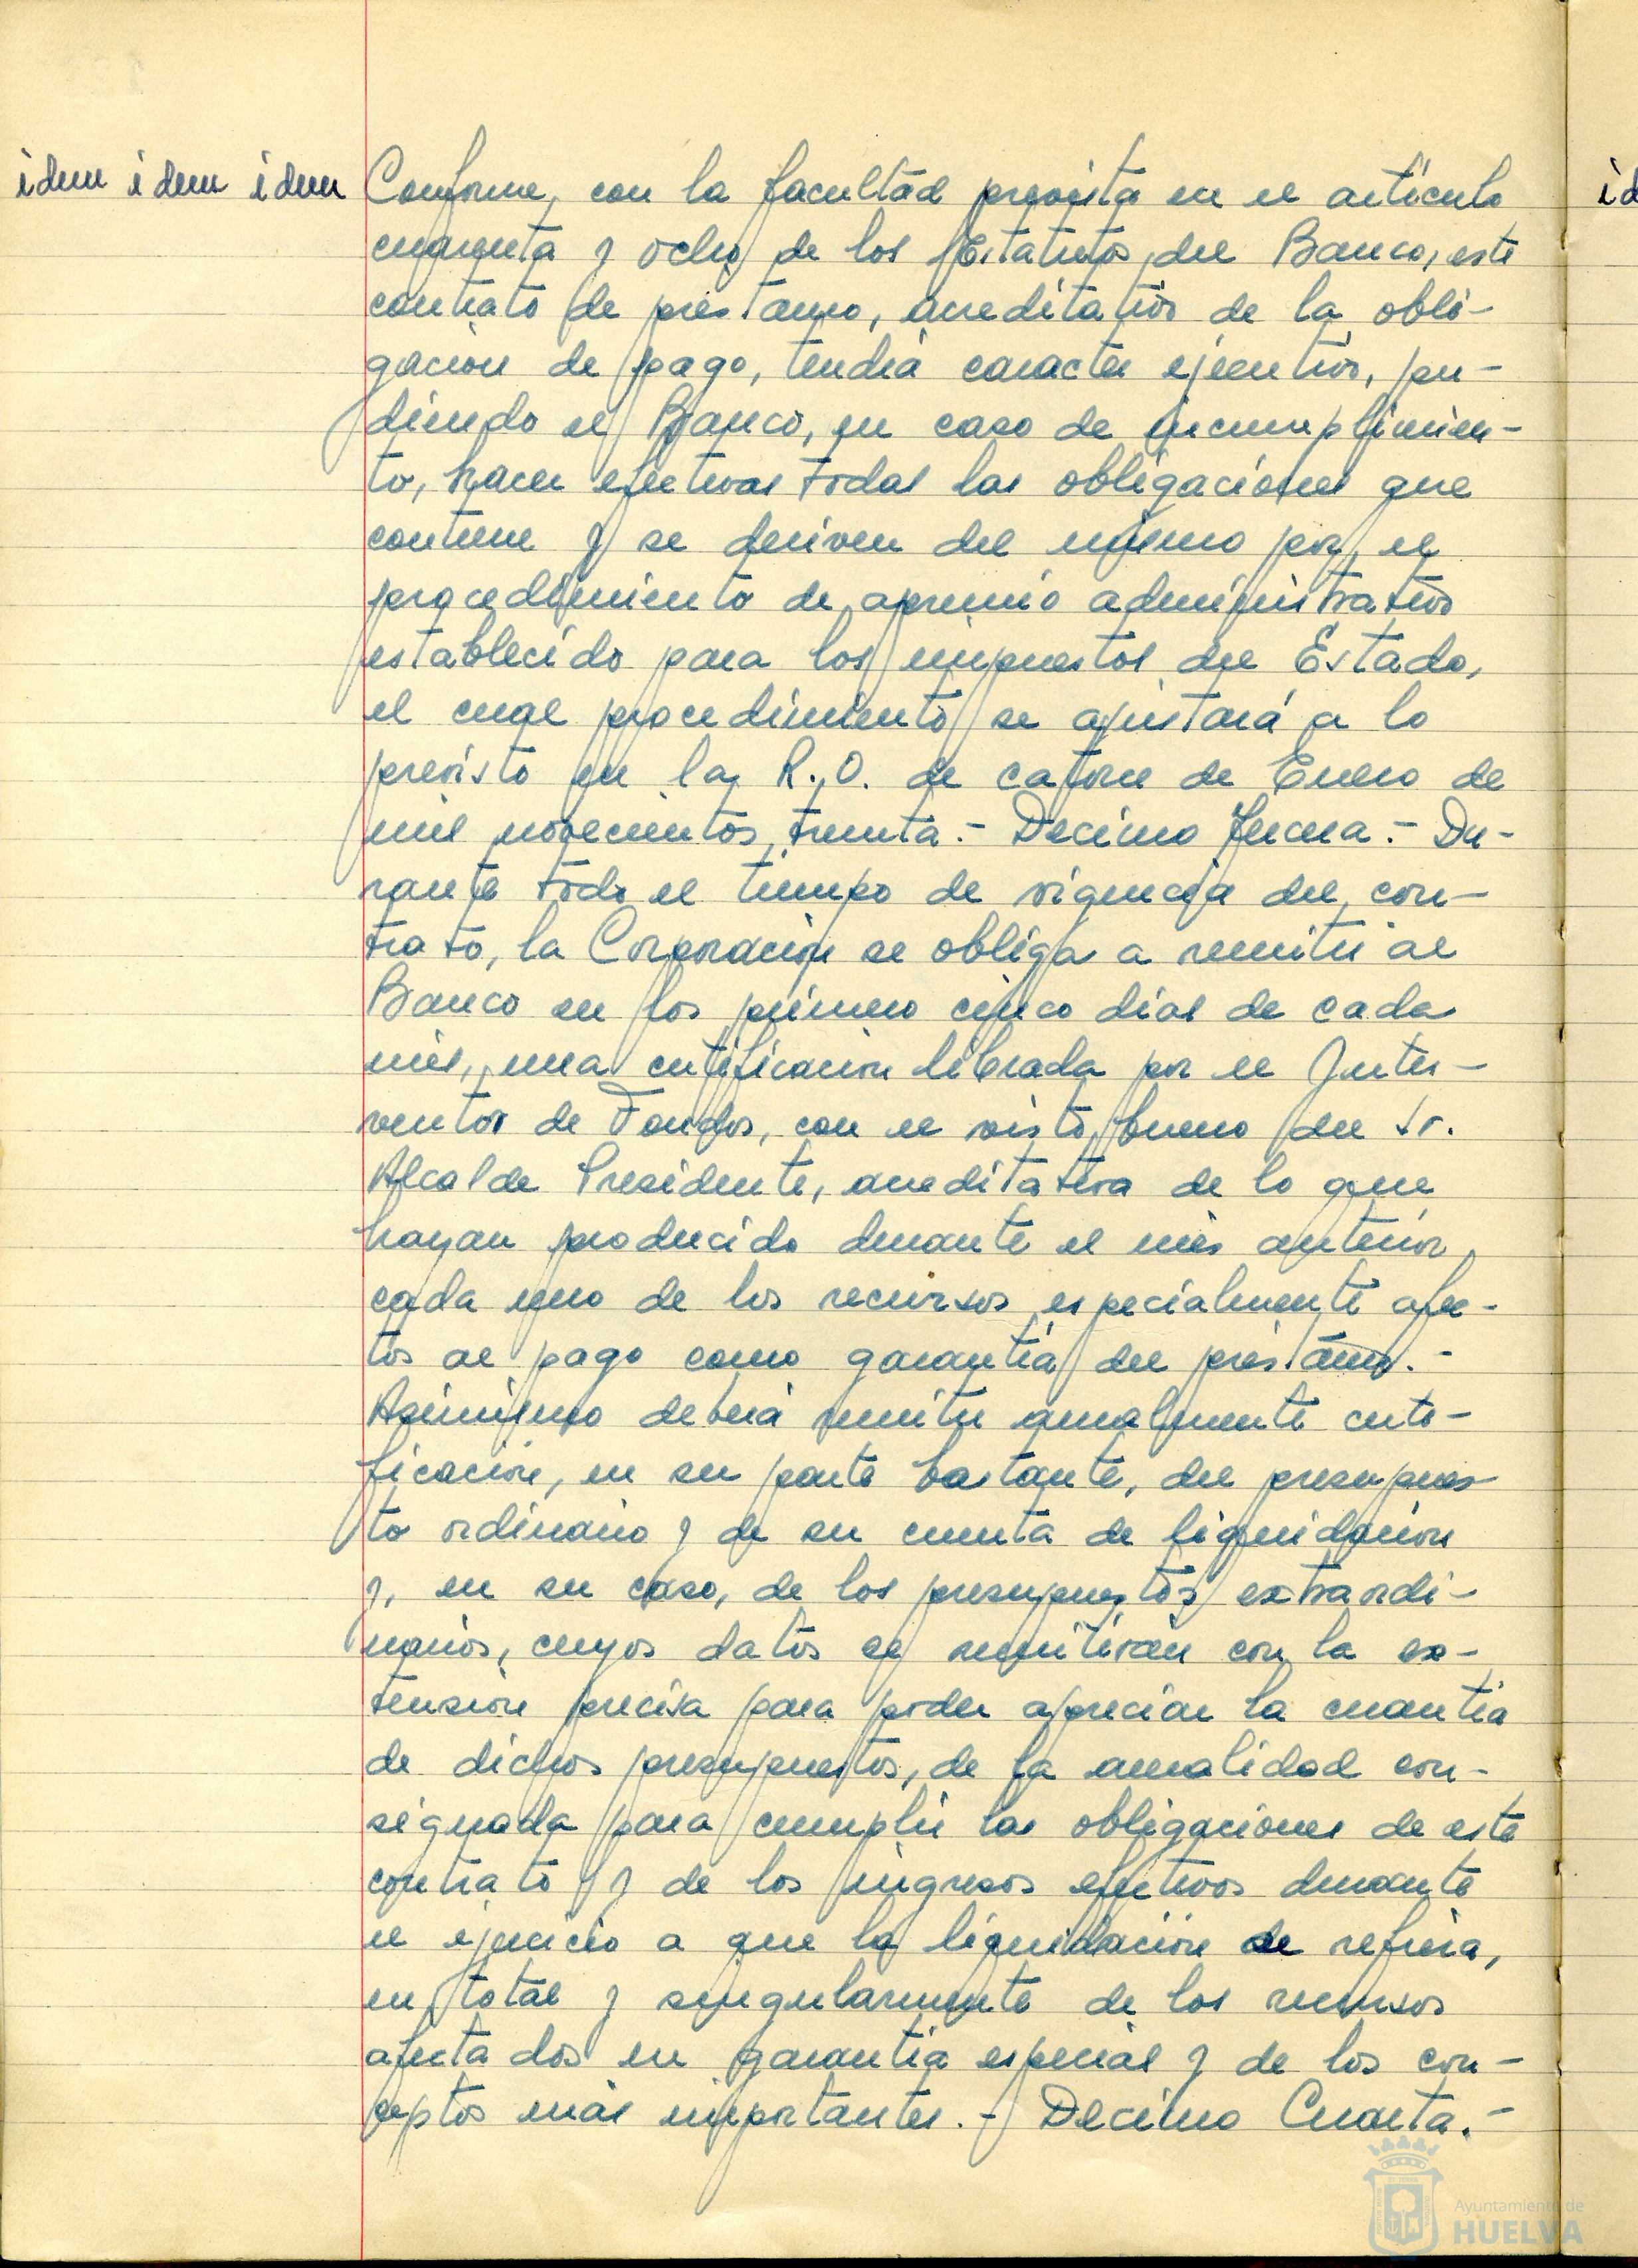 idem idem idem
Conforme, con la facultad prevista en el artículo
cuarenta y ocho de los Estatutos del Banco, este
contrato de préstamo, acreditativo de la obli-
gación de pago, tendrá caracter ejecutivo, pu-
diendo el Banco, en caso de incumplimien-
to, hacer efectivas todas las obligaciones que
contiene y se deriven del mismo por el
procedimiento de apremio administrativo
establecido para los impuestos del Estado,
el cual procedimiento se ajustará a lo
previsto en la R.O. de catorce de Enero de
mil novecientos treinta.- Decimo Tercera.- Du-
rante todo el tiempo de vigencia del con-
trato, la Corporación se obliga a remitir al
Banco en los primero cinco días de cada
mes, una certificación librada por el Inter-
ventor de Fondos, con el visto bueno del Sr.
Alcalde Presidente, acreditativa de lo que
hayan producido durante el mes anterior
cada uno de los recursos especialmente afec-
tos al pago como garantía del préstamo.-
Asimismo deberá remitir anualmente certi-
ficación, en su parte bastante, del presupues-
to ordinario y de su cuenta de liquidación
y, en su caso, de los presupuestos extraordi-
narios, cuyos datos se remitirán con la ex-
tensión precisa para poder apreciar la cuantía
de dichos presupuestos, de la anualidad con-
signada para cumplir las obligaciones de este
contrato y de los ingresos efectivos durante
el ejercicio a que la liquidación se refiera,
en total y singularmente de los recursos
afectados en garantía especial y de los con-
ceptos más importantes.- Decimo Cuarta.-
id
Ayuntamiento de
HUELVA